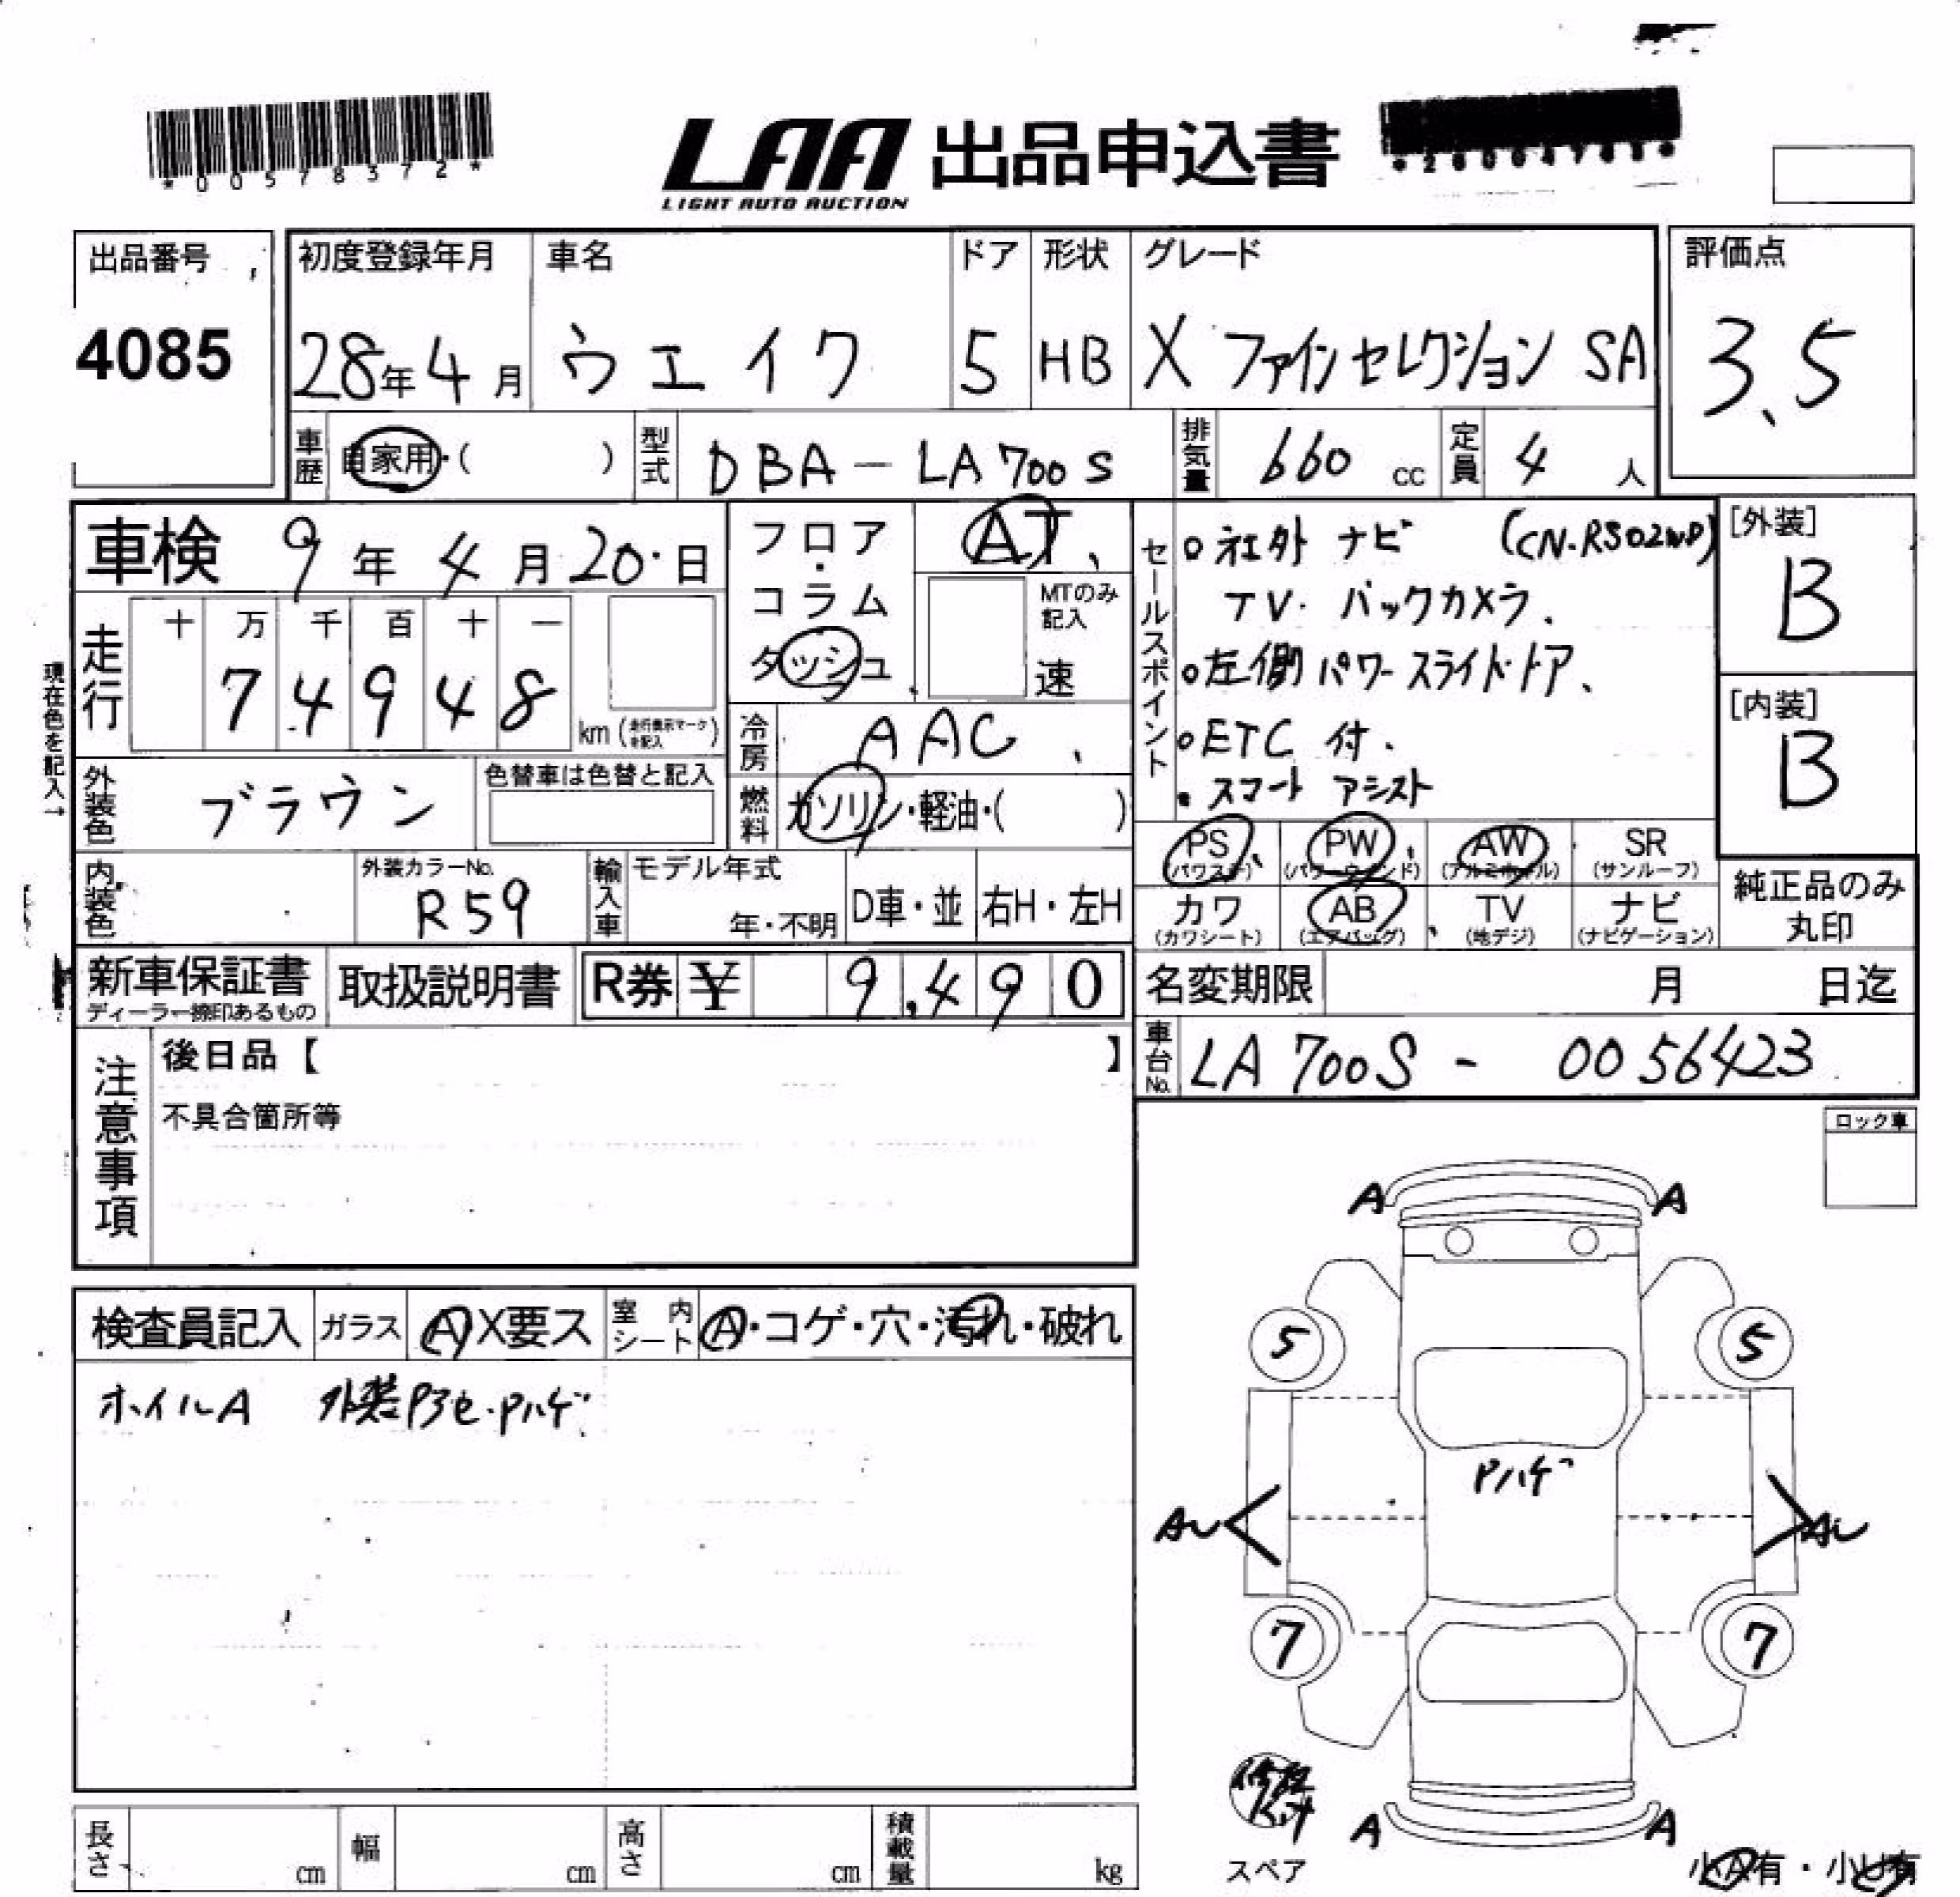 *00578372*
LAA 出品申込書
LIGHT AUTO AUCTION
出品番号
4085
初度登録年月 車名 ドア 形状 グレード
28年4月 ウエイク 5 HB X ファインセレクション SA
評価点
3.5
車歴 自家用・( ) 型式 DBA-LA700S 排気量 660 cc 定員 4 人
車検 9年4月20日
フロア・コラム ダッシュ AT
MTのみ記入 速
走行 十 万 千 百 十 一
7 4 9 4 8 km (走行表示マークを記入)
現在色を記入→
外装色 ブラウン 色替車は色替と記入
冷房 AAC
燃料 ガソリン・軽油・( )
セールスポイント
○社外 ナビ (CN-RS02WD)
TV・バックカメラ、
○左側パワースライドドア、
○ETC 付、
・スマートアシスト
[外装]
B
[内装]
B
PS (パワステ) PW (パワーウインド) AW (アルミホイル) SR (サンルーフ)
カワ (カワシート) AB (エアバッグ) TV (地デジ) ナビ (ナビゲーション)
純正品のみ丸印
内装色 外装カラーNo. R59
輸入車 モデル年式 年・不明 D車・並 右H・左H
新車保証書 ディーラー捺印あるもの 取扱説明書 R券 ¥ 9,490
名変期限 月 日迄
車台No. LA700S - 0056423
注意事項
後日品【 】
不具合箇所等
ロック車
検査員記入 ガラス A X要ス 室内シート A・コゲ・穴・汚れ・破れ
ホイルA 外装Pアセ・Pハゲ
A A
5 5
Pハゲ
AU AU
7 7
A A
スペア
小A有・小U有
長さ cm 幅 cm 高さ cm 積載量 kg